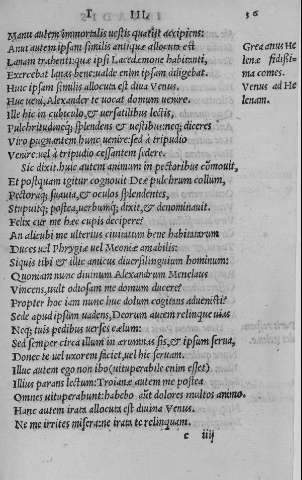 T III. 36
Manu autem immortalis uestis quassit accipiens:
Anui autem ipsam similis antiquæ allocuta est
Græ anus He
Lanam trahenti: quæ ipsi Lacedæmone habitanti,
lenæ fidißi-
Exercebat lanas bene: ualde enim ipsam diligebat.
ma comes.
Huic ipsam similis allocuta est diua Venus.
Venus ad He
Huc ueni, Alexander te uocat domum uenire.
lenam.
Ille hic in cubiculo, & uersatilibus lectis,
Pulchritudineq; splendens & uestibus: neq; diceres
Viro pugnantem hunc uenire: sed à tripudio
Venire: uel à tripudio cessantem sedere.
Sic dixit. huic autem animum in pectoribus cōmouit,
Et postquam igitur cognouit Deæ pulchrum collum,
Pectoraq; suauia, & oculos splendentes,
Stupuitq; postea, uerbumq; dixit, & denominauit.
Felix cur me hæc cupis decipere?
An alicubi me ulterius ciuitatum bene habitatarum
Duces uel Phrygiæ uel Meoniæ amabilis:
Siquis tibi & illic amicus diuersilinguium hominum:
Quoniam nunc diuinum Alexandrum Menelaus
Vincens, uult odiosam me domum ducere?
Propter hoc iam nunc huc dolum cogitans aduenisti?
Sede apud ipsum uadens, Deorum autem relinque uias
Neq; tuis pedibus uerses cælum:
Sed semper circa illum in ærumnas sis, & ipsum serua,
Donec te uel uxorem faciet, uel hic seruam.
Illuc autem ego non ibo (uituperabile enim esset)
Illius parans lectum: Troianæ autem me postea
Omnes uituperabunt: habebo aūt dolores multos animo.
Hanc autem irata allocuta est diuina Venus.
Ne me irrites misera: ne irata te relinquam.
e iiij